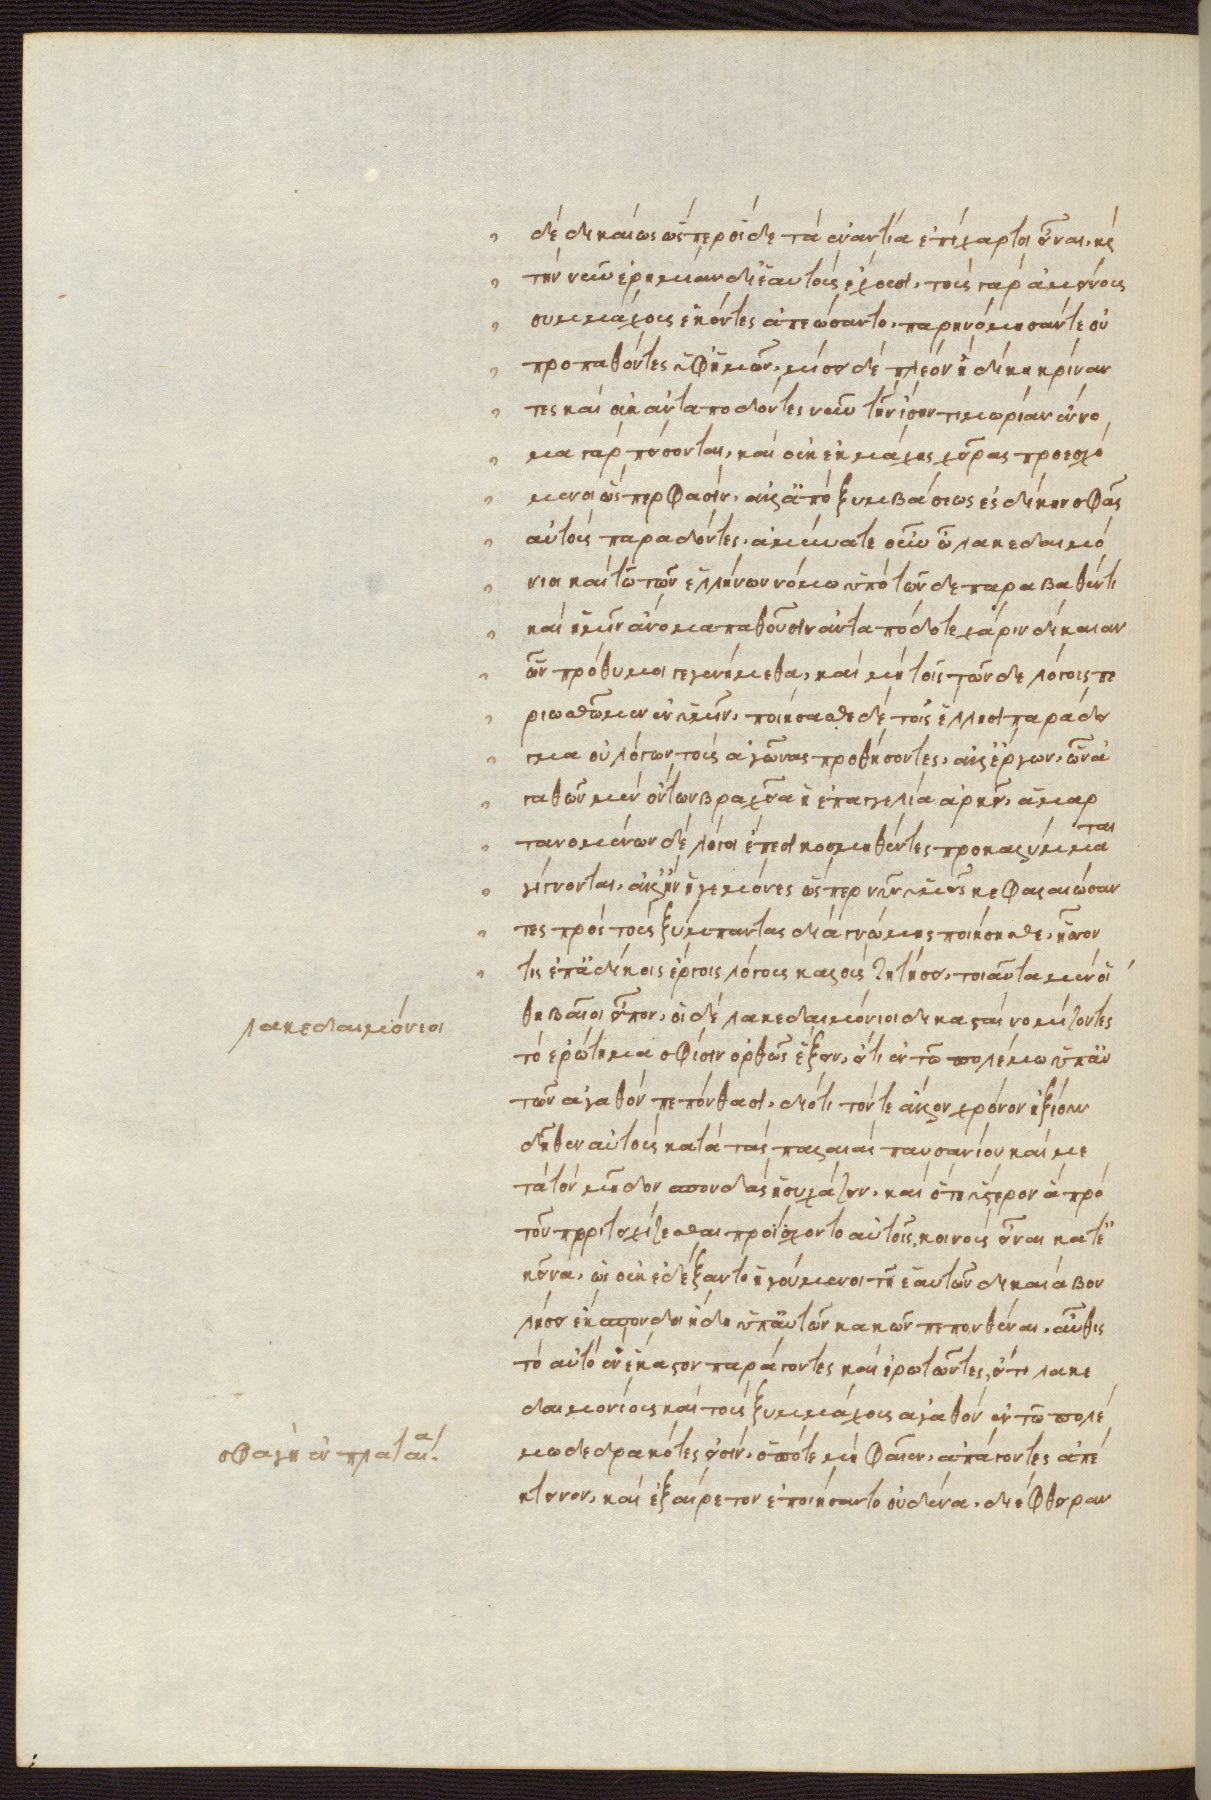 δὲ δικαίως ὥσπερ οἵδε τὰ ἐναντία ἐπίχαρτοι εἶναι. καὶ
τὴν νῦν ἐρημίαν δι' ἑαυτοὺς ἔχουσι. τοὺς γὰρ ἀμείνους
συμμάχους ἑκόντες ἀπεώσαντο. παρηνόμησάν τε οὐ
προπαθόντες ὑφ' ἡμῶν. μίσει δὲ πλέον ἢ δίκῃ κρίναν
τες καὶ οὐκ ἀνταποδόντες νῦν τὴν ἴσην τιμωρίαν ἔννο
μα γὰρ πείσονται. καὶ οὐκ ἐκ μάχης χεῖρας προισχό
μενοι ὥσπερ φασίν. ἀλλ' ἀπὸ ξυμβάσεως ἐς δίκην σφᾶς
αὐτοὺς παραδόντες. ἀμύνατε οὖν ὦ λακεδαιμό
νιοι καὶ τῷ τῶν ἑλλήνων νόμῳ ὑπὸ τῶνδε παραβαθέντι
καὶ ἡμῖν ἄνομα παθοῦσιν ἀνταπόδοτε χάριν δικαίαν
ὧν πρόθυμοι γεγενήμεθα. καὶ μὴ τοῖς τῶνδε λόγοις πε
ριωσθῶμεν ἐν ὑμῖν. ποιήσατε δὲ τοῖς ἕλλησι παράδει
γμα οὐ λόγων τοὺς ἀγῶνας προθήσοντες. ἀλλ' ἔργων. ὧν ἀ
γαθῶν μὲν ὄντων βραχεῖα ἡ ἐπαγγελία ἀρκεῖ. ἁμαρ
τανομένων δὲ λόγοι ἔπεσι κοσμηθέντες προκαλύμματα
γίγνονται. ἀλλ' ἢν ἡγεμόνες ὥσπερ νῦν ὑμεῖς κεφαλαιώσαν
τες πρὸς τοὺς ξύμπαντας διαγνώμης ποιήσησθε. ἧσσον
τις ἐπ' ἀδίκοις ἔργοις λόγους καλοὺς ζητήσει. τοιαῦτα μὲν οἱ
θηβαῖοι εἶπον. οἱ δὲ λακεδαιμόνιοι δικασταὶ νομίζοντες
τὸ ἐρώτημα σφίσιν ὀρθῶς ἕξειν. εἴ τι ἐν τῷ πολέμῳ ὑπ' αὐ
τῶν ἀγαθὸν πεπόνθασι. διότι τόν τε ἄλλον χρόνον ἠξίουν
δῆθεν αὐτοὺς κατὰ τὰς παλαιὰς παυσανίου καὶ με
τὰ τὸν μῆδον σπονδὰς ἡσυχάζειν. καὶ ὅτε ὕστερον ἃ πρὸ
τοῦ περιτειχίζεσθαι προείχοντο αὐτοῖς, κοινοὺς εἶναι κατ' ἐ
κεῖνα. ὡς οὐκ ἐδέξαντο ἡγούμενοι τῇ ἑαυτῶν δικαίᾳ βου
λήσει ἔκσπονδοι ἤδη ὑπ' αὐτῶν κακῶς πεπονθέναι. αὖθις
τὸ αὐτὸ ἓν ἕκαστον παράγοντες καὶ ἐρωτῶντες, εἴ τι λακε
δαιμονίους καὶ τοὺς ξυμμάχους ἀγαθὸν ἐν τῷ πολέ
μῳ δεδρακότες εἰσίν. ὁπότε μὴ φαῖεν. ἀπάγοντες ἀπέ
κτεινον. καὶ ἐξαίρετον ἐποιήσαντο οὐδένα. διέφθειραν
λακεδαιμόνιοι
σφαγὴ ἐν πλαταιαῖ.